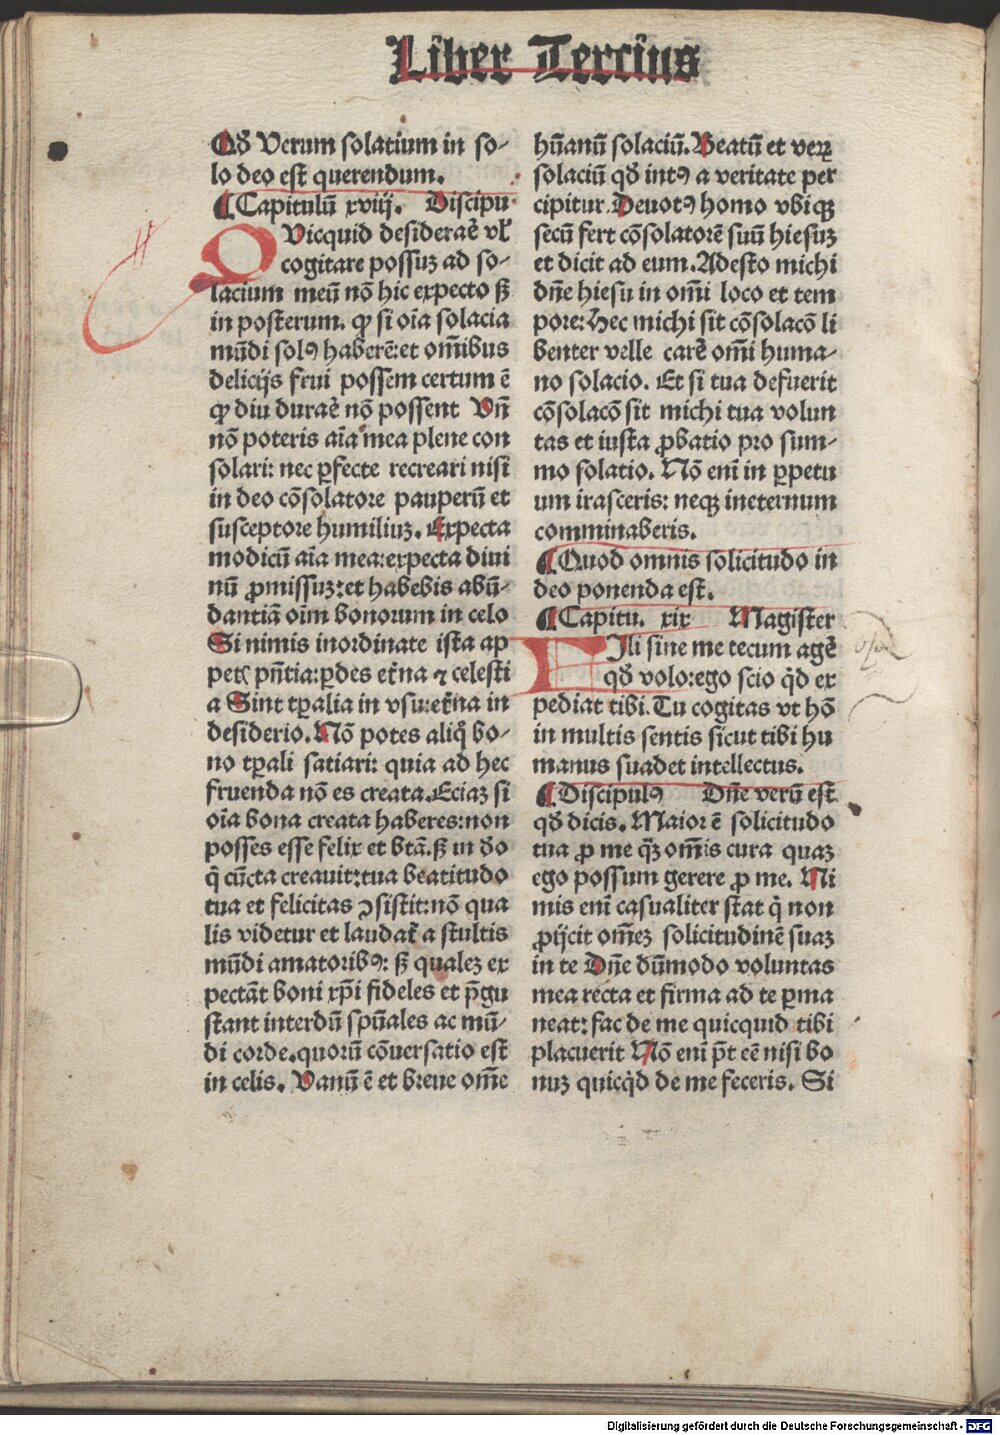 Liber Tercius
Qð Verum solatium in so-
lo deo est querendum.
¶ Capitulū xviij. Discipu
QVicquid desideraē vƚ
cogitare possuꝫ ad so-
lacium meū nō hic expecto sꝫ
in posterum. ꝙ si oīa solacia
mūdi solꝯ haberē: et om̄ibus
delicijs frui possem certum ē
ꝙ diu duraē nō possent Vn̄
nō poteris aīa mea plene con
solari: nec ꝑfecte recreari nisi
in deo cōsolatore pauperū et
susceptore humiliuꝫ. Expecta
modicū aīa mea: expecta diui
nū ꝓmissuꝫ: et habebis abū-
dantiā oīm bonorum in celo
Si nimis inordinate ista ap
petꝭ pn̄tia: ꝑdes et̄na ⁊ celesti
a Sint tꝑalia in vsu: et̄na in
desiderio. Nō potes aliq̊ bo-
no tꝑali satiari: quia ad hec
fruenda nō es creata. Eciaꝫ si
oīa bona creata haberes: non
posses esse felix et btā. sꝫ in ðo
q̇ cūcta creauit: tua beatitudo
tua et felicitas ꝯsistit: nō qua
lis videtur et laudat̄ a stultis
mūdi amatoribꝯ: sꝫ qualeꝫ ex
pectāt boni xp̄i fideles et p̄gu
stant interdū spūales ac mū-
di corde. quorū cōuersatio est
in celis. Vanū ē et breue om̄e
hūanū solaciū. Beatū et verꝝ
solaciū qð intꝯ a veritate per
cipitur. Deuotꝯ homo vbiqꝫ
secū fert cōsolatorē suū hiesuꝫ
et dicit ad eum. Adesto michi
dn̄e hiesu in om̄i loco et tem
pore: Hec michi sit cōsolacō li
benter velle carē om̄i huma-
no solacio. Et si tua defuerit
cōsolacō sit michi tua volun
tas et iusta ꝓbatio pro sum-
mo solatio. Nō enī in ꝑpetu
um irasceris: neqꝫ ineternum
comminaberis.
¶ Quod omnis solicitudo in
deo ponenda est.
¶ Capitu. xix Magister
FIli sine me tecum agē
qð volo: ego scio q̇d ex
pediat tibi. Tu cogitas vt hō
in multis sentis sicut tibi hu
manus suadet intellectus.
¶ Discipulꝯ Dn̄e verū est
qð dicis. Maior ē solicitudo
tua ꝓ me qꝫ om̄is cura quaꝫ
ego possum gerere ꝓ me. Ni
mis enī casualiter stat q̇ non
ꝓijcit om̄eꝫ solicitudinē suaꝫ
in te Dn̄e dūmodo voluntas
mea recta et firma ad te ꝑma
neat: fac de me quicquid tibi
placuerit Nō enī p̄t eē nisi bo
nuꝫ quicq̇d de me feceris. Si
Digitalisierung gefördert durch die Deutsche Forschungsgemeinschaft - DFG